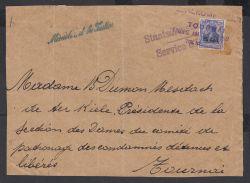 Ministère de la Justice
Service
Madame B. Dumon Mesdach
de ter Kiele, Présidente de la
Section des Dames du comité de
patronage des condamnés détenus et
libérés
Tournai